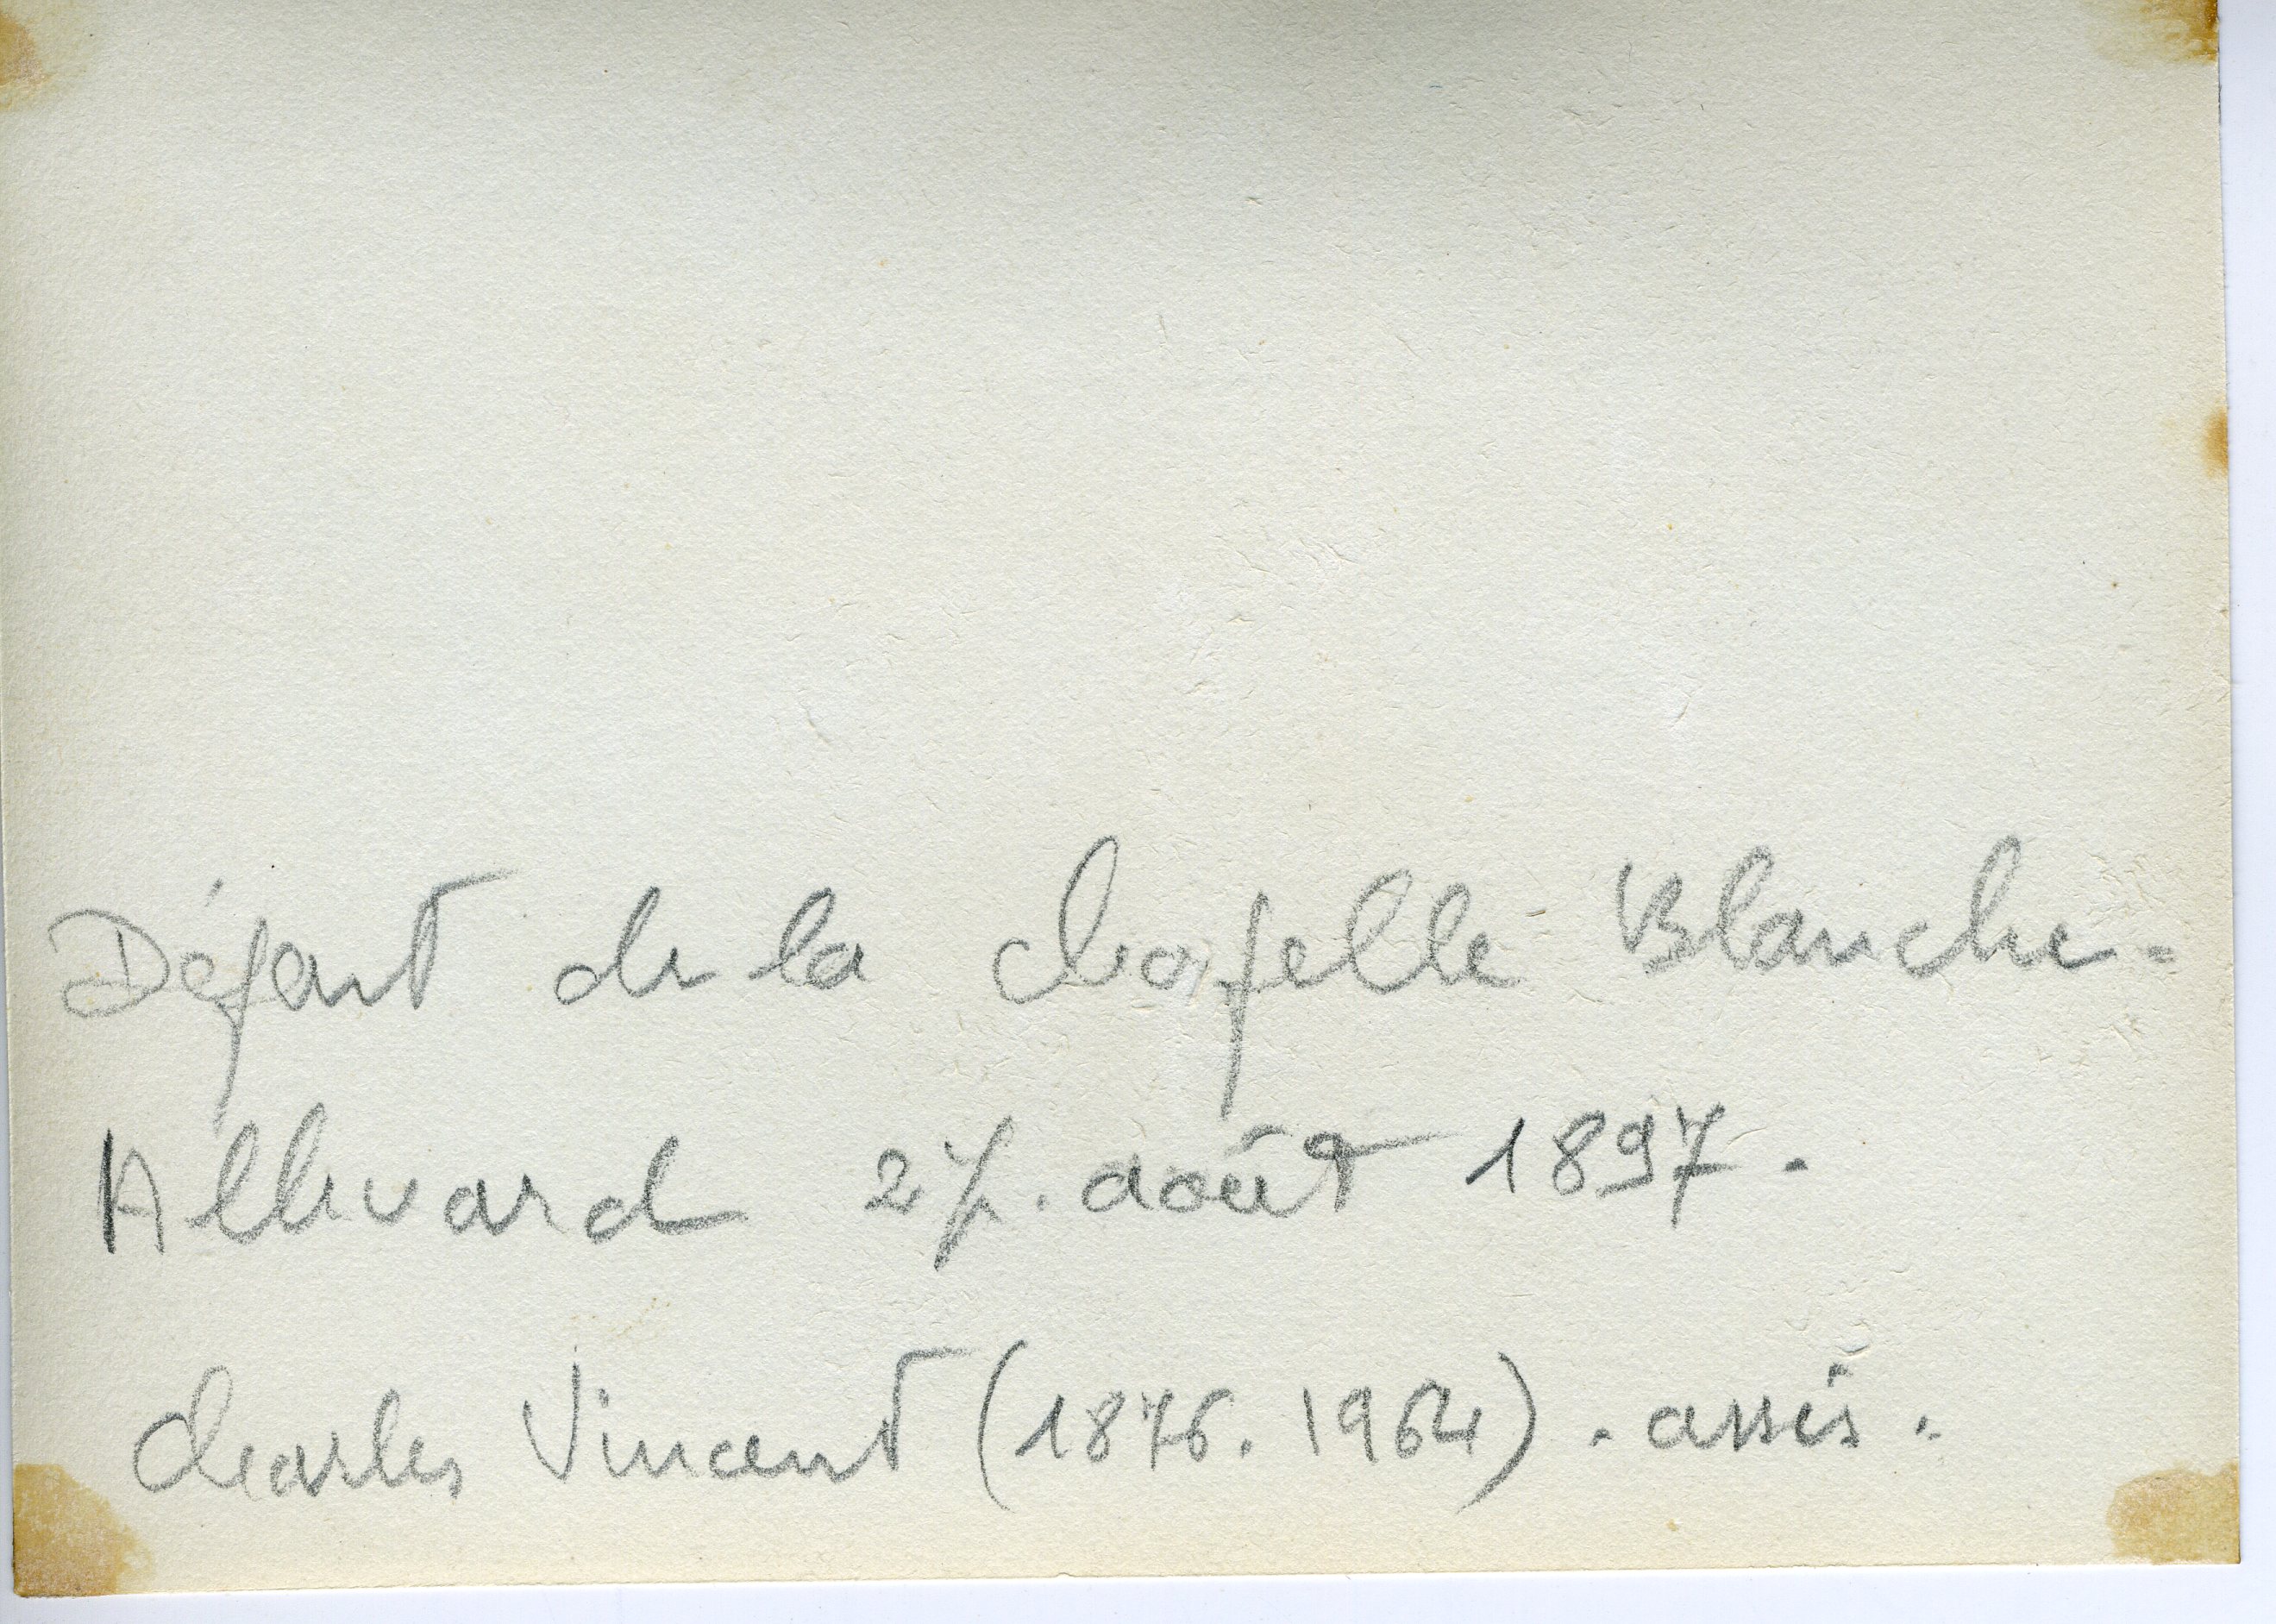 Départ de la chapelle Blanche-
Allevard 27. août 1897.
Charles Vincent (1876. 1964). assis.